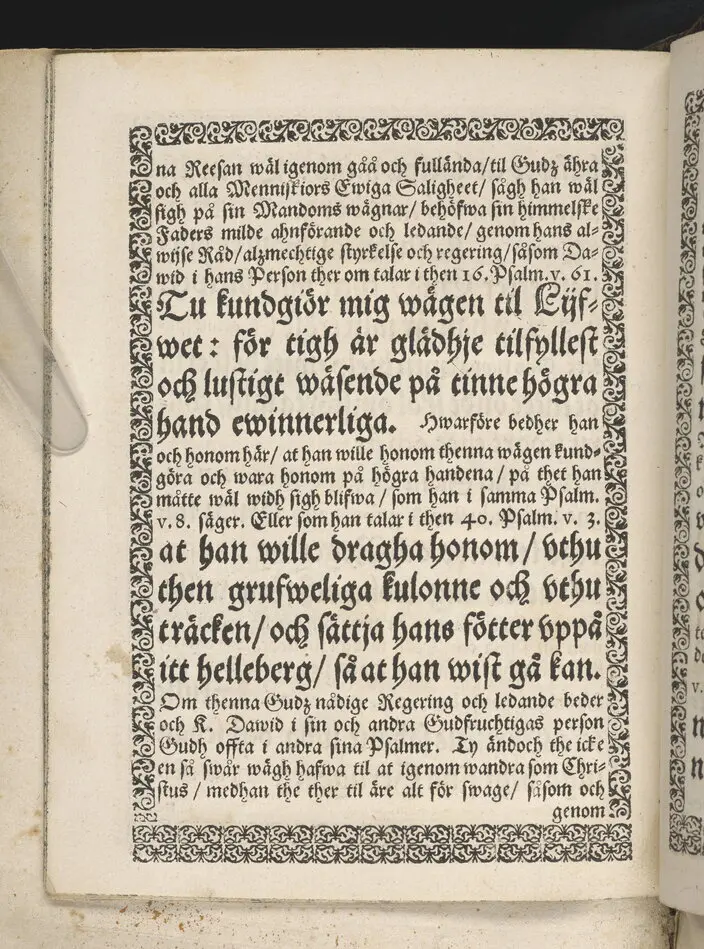 na Reesan wäl igenom gåå och fullända/ til Gudz ähra
och alla Menniskiors Ewiga Saligheet/ sågh han wäl
sigh på sin Mandoms wägnar/ behöfwa sin himmelske
Faders milde ahnförande och ledande/ genom hans al-
wijse Råd/ alzmechtige styrkelse och regering/ såsom Da-
wid i hans Person ther om talar i then 16. Psalm. v. 61.
Tu kundgiör mig wägen til Lijf-
wet: för tigh är glädhje tilfyllest
och lustigt wäsende på tinne högra
hand ewinnerliga. Hwarföre bedher han
och honom här/ at han wille honom thenna wägen kund-
göra och wara honom på högra handena/ på thet han
måtte wäl widh sigh blifwa/ som han i samma Psalm.
v. 8. säger. Eller som han talar i then 40. Psalm. v. 3.
at han wille dragha honom/ vthu
then grufweliga kulonne och vthu
träcken/ och sättja hans fötter vppå
itt helleberg/ så at han wist gå kan.
Om thenna Gudz nådige Regering och ledande beder
och K. Dawid i sin och andra Gudfruchtigas person
Gudh offta i andra sina Psalmer. Ty ändoch the icke
en så swår wägh hafwa til at igenom wandra som Chri-
stus/ medhan the ther til äre alt för swage/ såsom och
genom